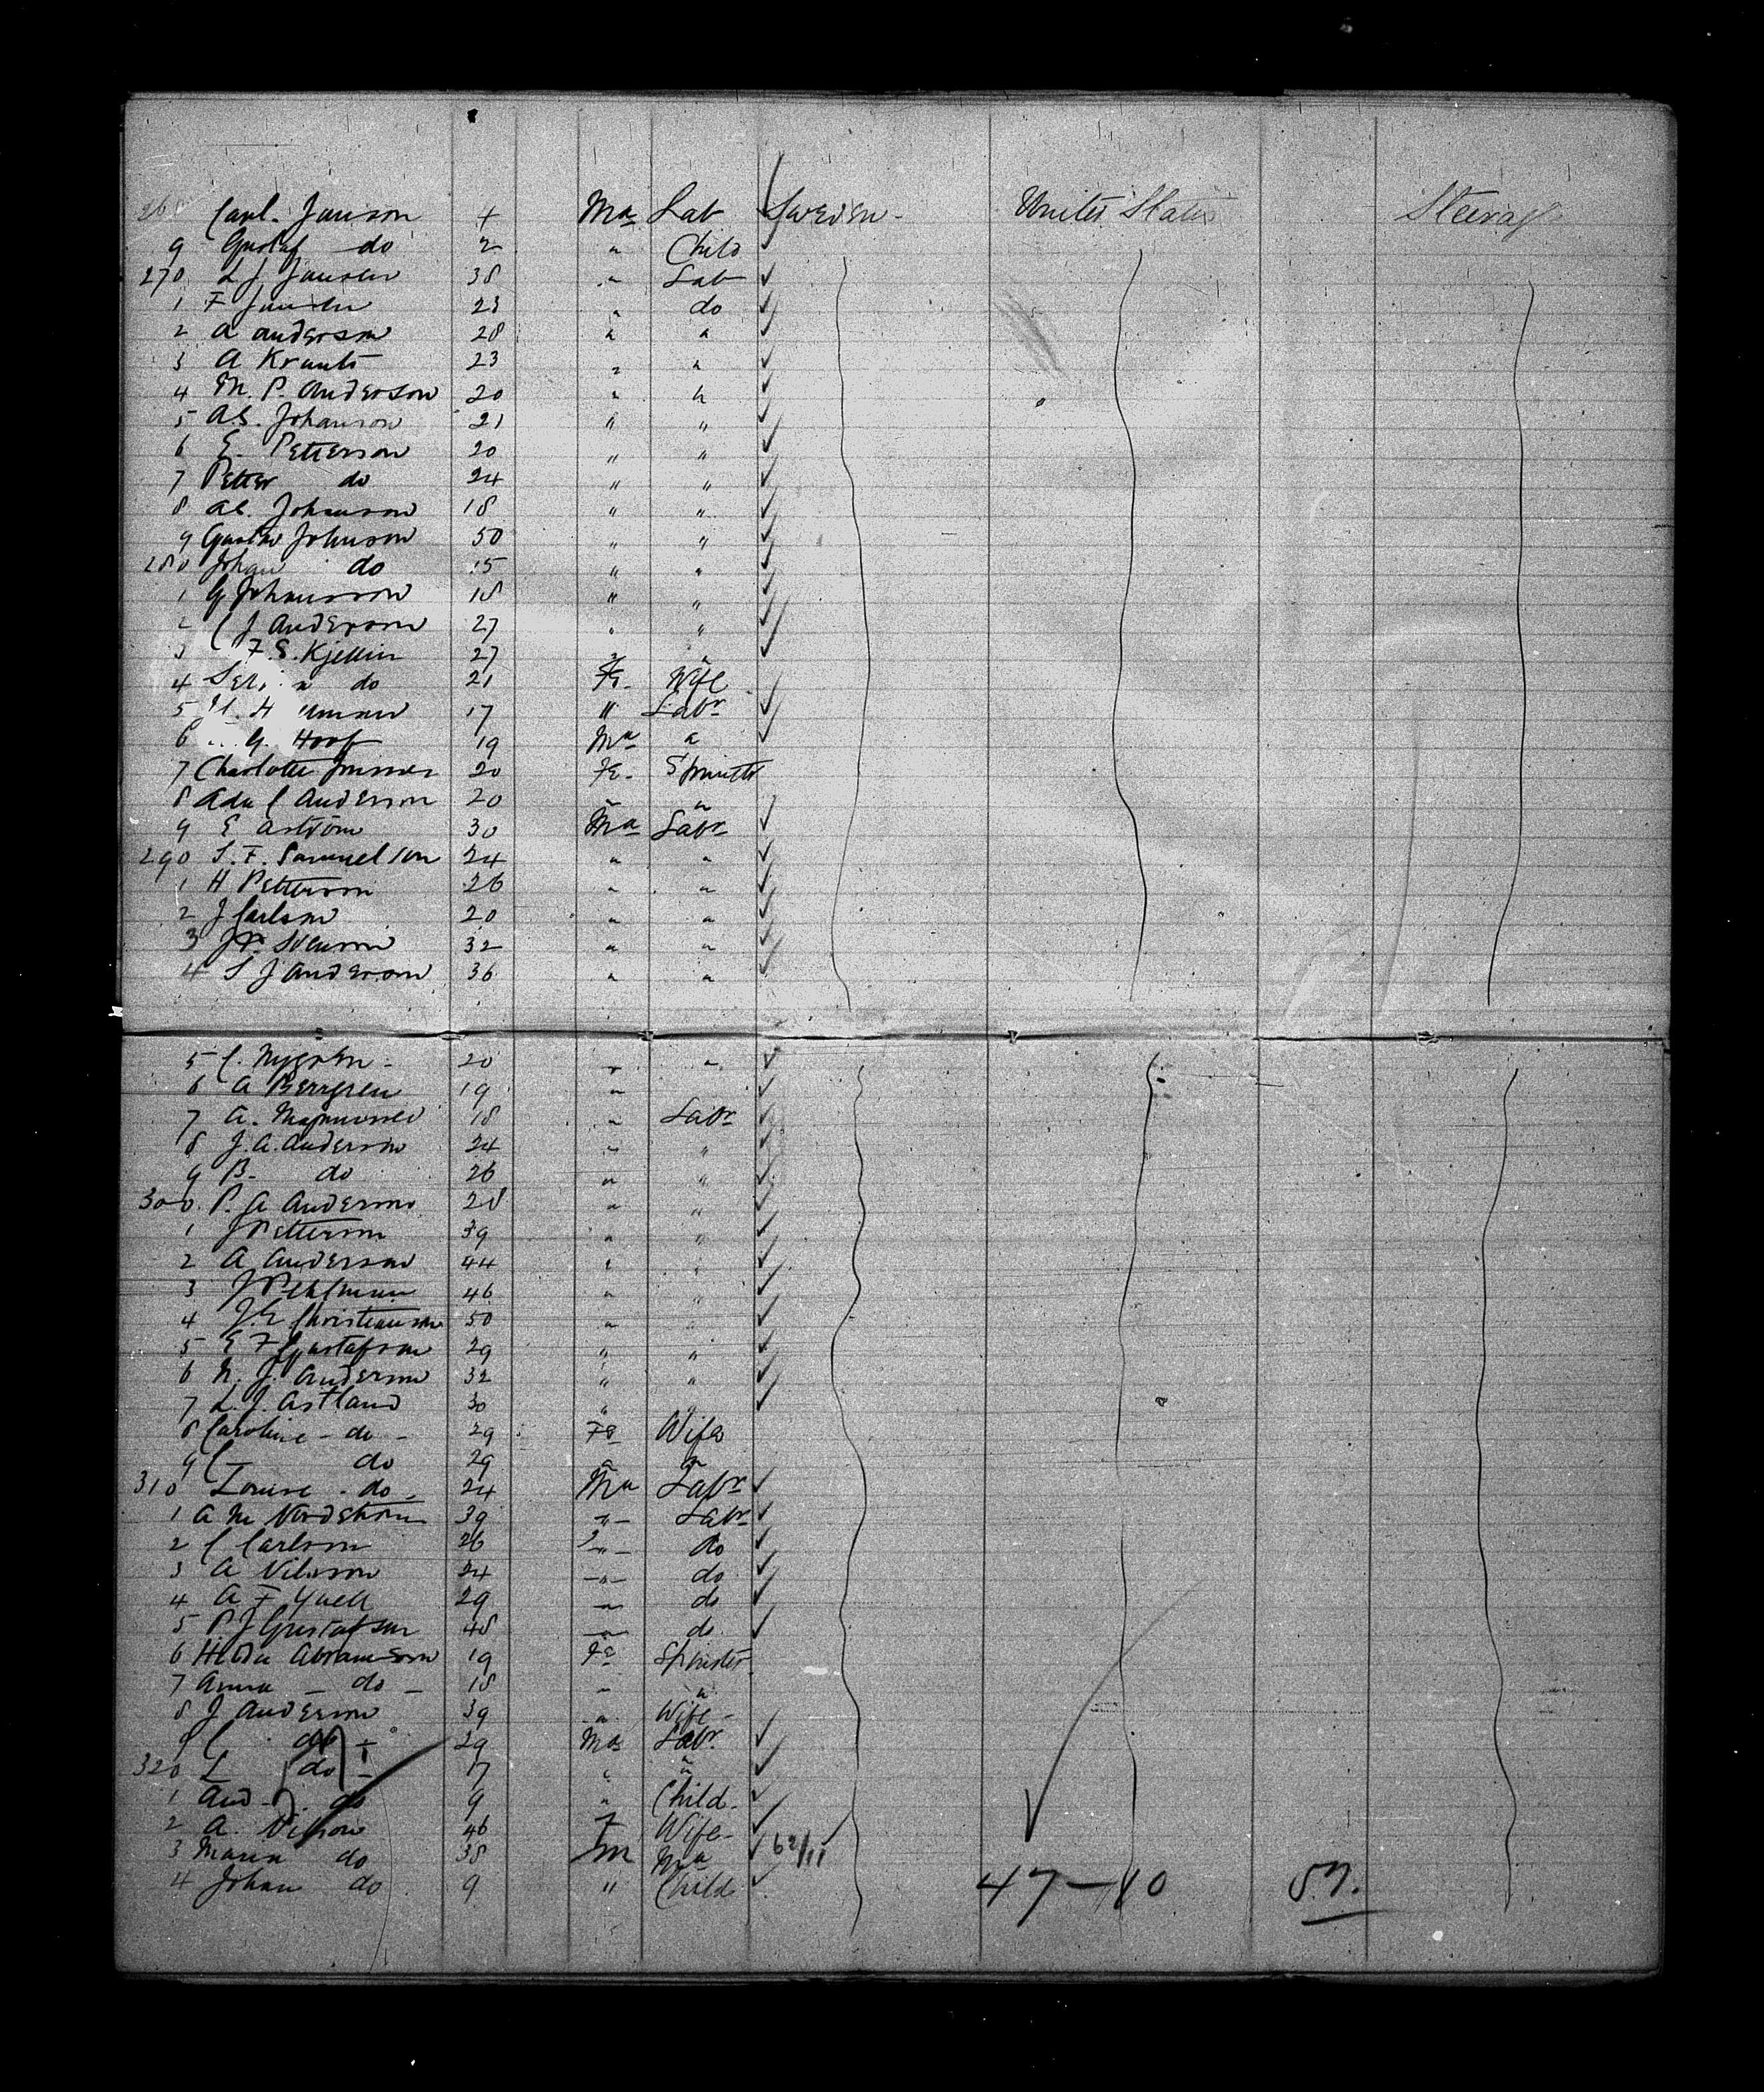 26 Carl. Janson 4 Ma Lab Sweden - United States Steerage
9 Gustaf do 2 " Child
270 L J Janson 38 " Lab
1 F 23 " do
2 A Anderson 28 " "
3 A Krants 23 " "
4 M. P. Anderson 20 " "
5 Johanson 21 " "
6 E. Petterson 20 " "
7 Petter do 24 " "
8 Johanson 18 " "
9 Gustav Johnson 50 " "
280 Johan do 15 " "
1 G Johansson 18 " "
2 C J Anderson 27 " "
3 F. E. Kjellin 27 " "
4 do 21 Fe. Wife
5 17 " Labr
6 G. Hoof 19 Ma "
7 Charlotte 20 Fe. Spinstr
8 Ada C Anderson 20 " "
9 E Aström 30 Ma Labr
290 S. F. Samuelson 24 " "
1 H Petterson 26 " "
2 J Carlson 20 " "
3 J P. Svenson 32 " "
4 S J Anderson 36 " "
5 C. Nygren - 20 " "
6 A Berggren 19 "
7 A. 18 " Labr
8 J. A. Anderson 24 " "
9 B - do 26 " "
300. P. A Anderson 28 " "
1 J Petterson 39 " "
2 A Anderson 44 " "
3 J 46 " "
4 J. E Christianson 50 " "
5 E F Gustafson 29 " "
6 N. J. Anderson 32 " "
7 L. J. Astland 30 " "
8 Caroline - do - 29 Fe Wife
9 C - do 29 " "
310 Louise - do - 24 Ma Labr
1 A M Nordström 39 " Labr
2 C Carlson 26 " do
3 A Nilsson 24 " do
4 A F 29 " do
5 P J Gustafson 48 " do
6 Hilda Abramson 19 Fe Spinster
7 Anna - do - 18 " "
8 J Anderson 39 " Wife -
9 C do - 29 Ma Labr.
320 L do - 17 " "
1 And - do 9 " Child -
2 A. Nilson 46 F Wife -
3 Maria do 38 M Ma 62/11
4 Johan do 9 " Child 47-10 57.